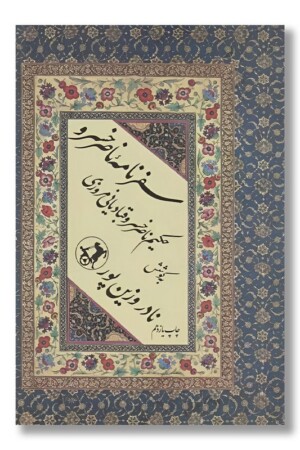 سفرنامه ناصر خسرو
حکیم ناصر خسرو قبادیانی مروزی
بکوشش
نادر وزین پور
چاپ یازدهم